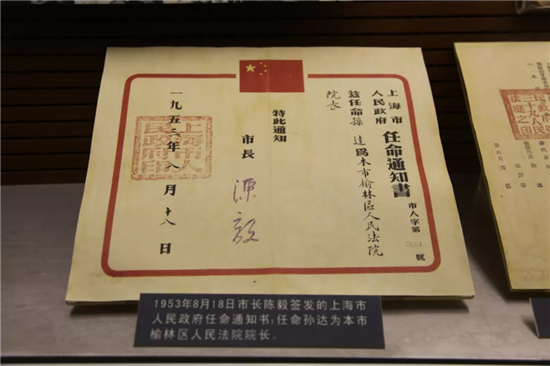 上海市
人民政府
任命通知書
市人字第 號
茲任命孫 達爲本市榆林區人民法院
院長
特此通知
市長 陳毅
一九五三年八月十八日
上海市人民政府印
1953年8月18日市长陈毅签发的上海市
人民政府任命通知书：任命孙达为本市
榆林区人民法院院长。